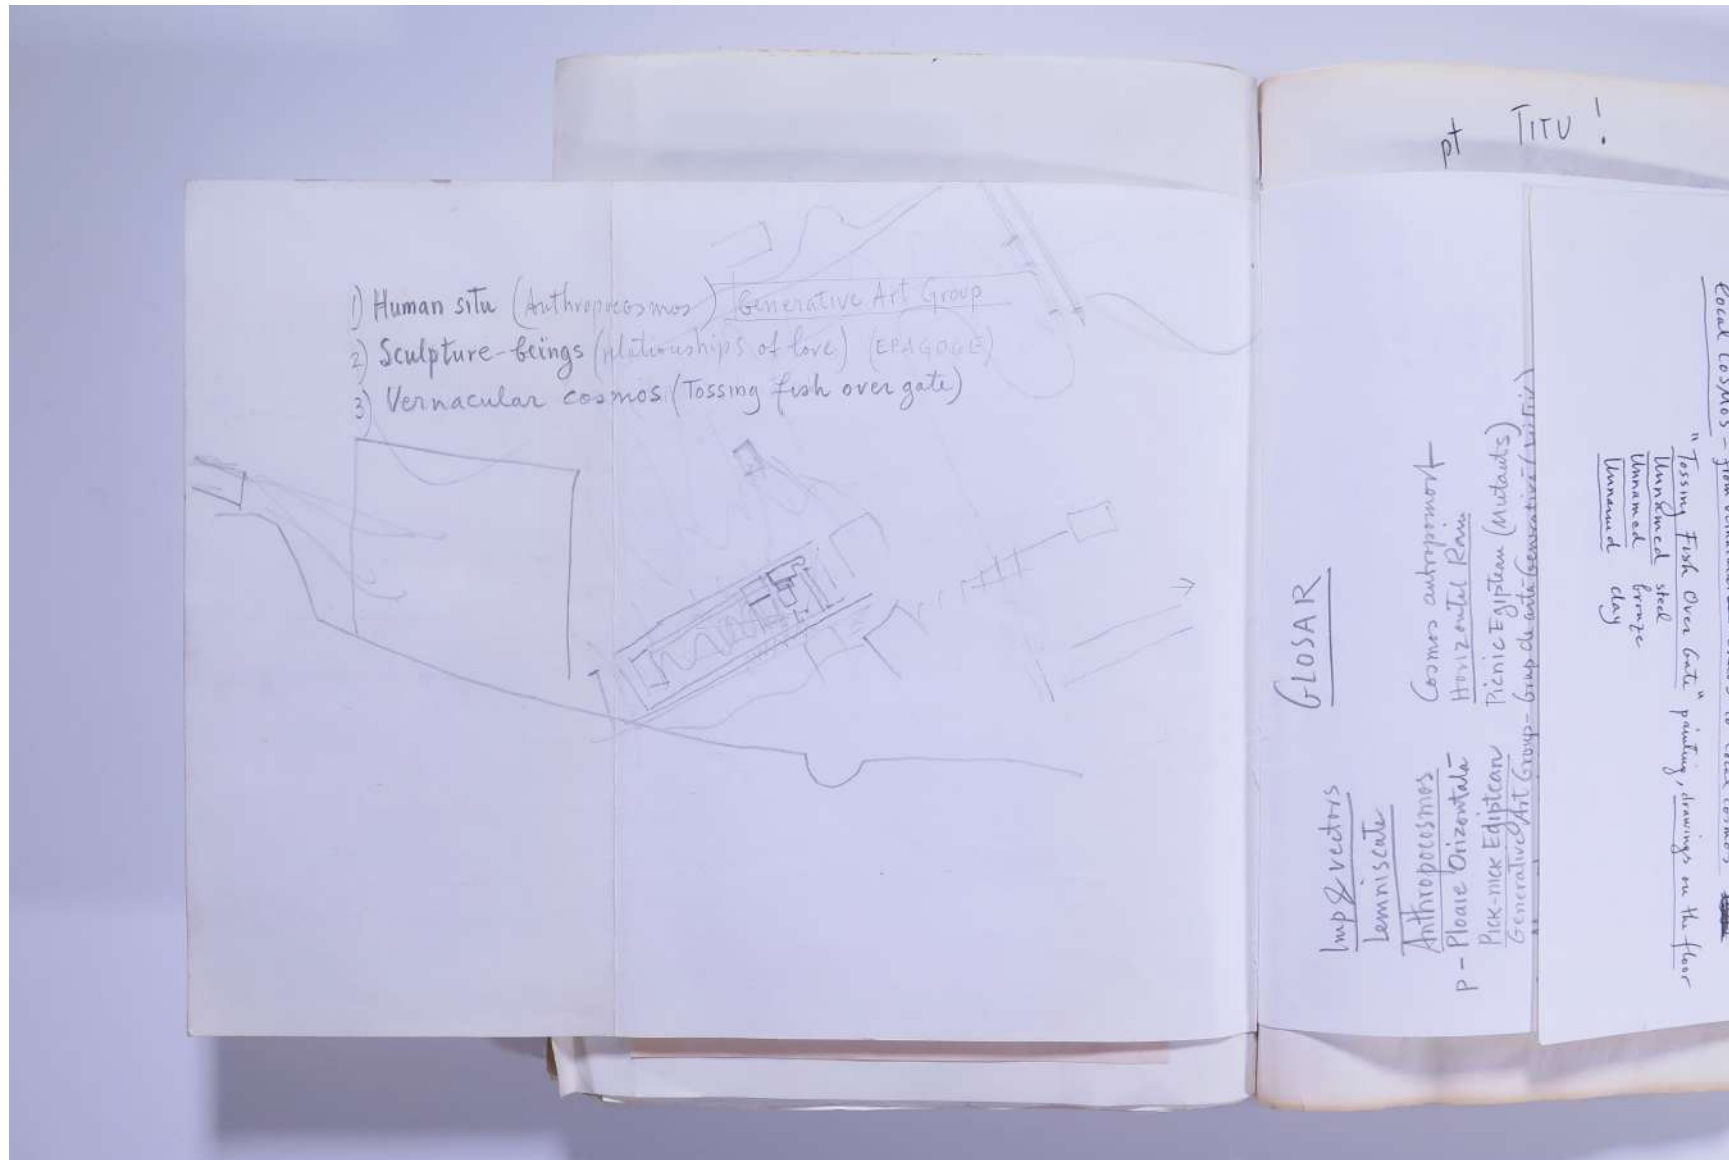 1) Human situ (Anthropocosmos) Generative Art Group
2) Sculpture-beings (relationships of love) (EPAGOGE)
3) Vernacular cosmos (Tossing fish over gate)
pt TITU!
GLOSAR
Imp & vectors
Lemniscate
Anthropocosmos Cosmos antropomorf
P - Ploaie Orizontală Horizontal Rain
Pick-nick Ediptean Picnic Egiptean (Mutants)
Generative Art Group - Grup de arta Generativa -
Local Cosmos - from
"Tossing Fish Over Gate" painting, drawings on the floor
Unnamed steel
Unnamed bronze
Unnamed clay